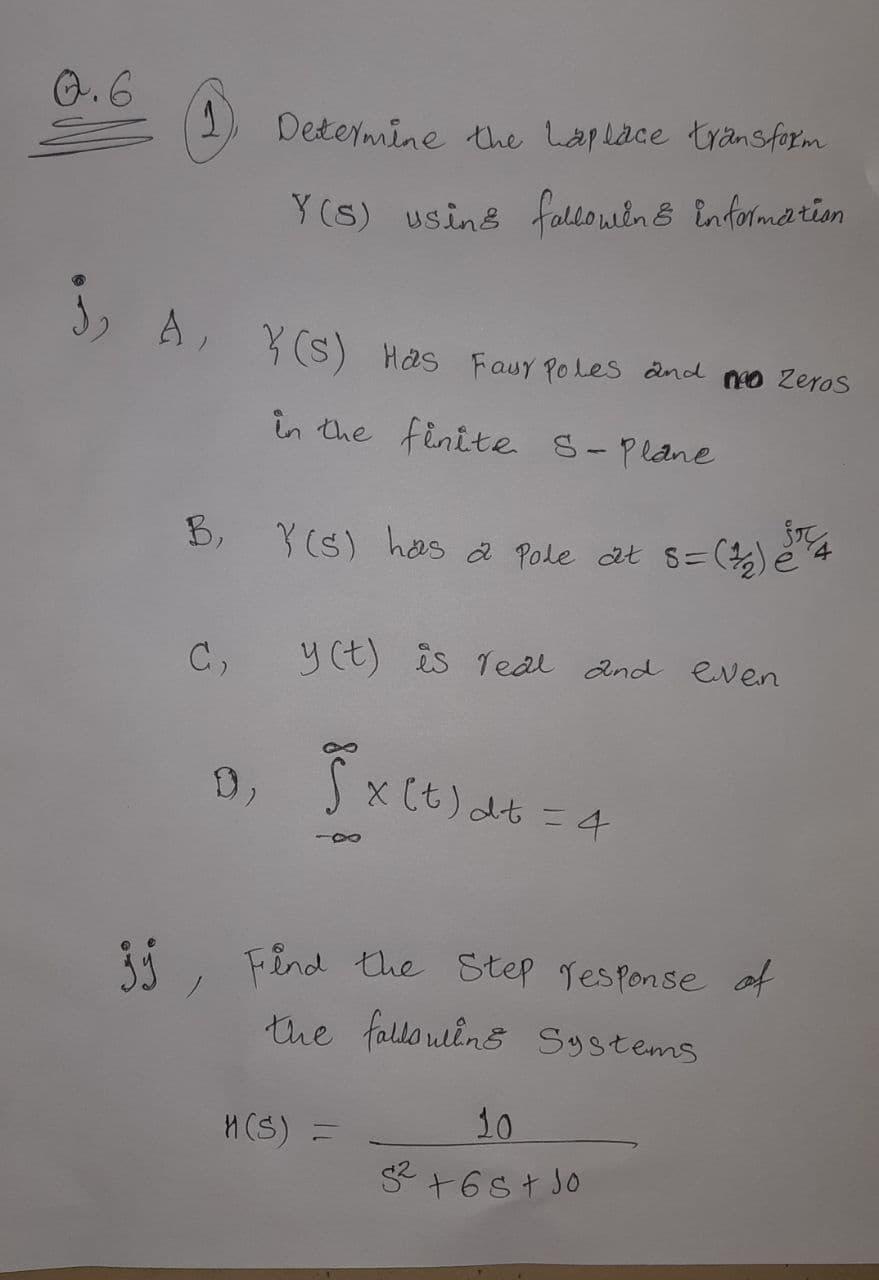 Q.6 1) Determine the Laplace transform
Y(S) using following information
j, A, Y(S) Has Four Poles and no Zeros
in the finite S-Plane
B, Y(S) has a Pole at S=(1/2) e^jπ/4
C, y(t) is real and even
D, ∫_{-∞}^{∞} x(t) dt = 4
jj, Find the Step response of
the following Systems
H(S) = 10 / S² + 6S + 10